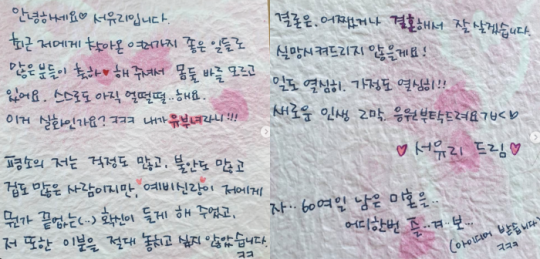 안녕하세요♡ 서유리입니다.
최근 저에게 찾아온 여러가지 좋은 일들로
많은분들이 축하♥해 주셔서 몸둘 바를 모르고
있어요. 스스로도 아직 얼떨떨..해요.
이거 실화인가요? ㅋㅋㅋ 내가 유부녀라니!!!
평소의 저는 걱정도 많고, 불안도 많고
겁도 많은 사람이지만, 예비신랑이 저에게
뭔가 끝없는(..) 확신이 들게 해 주었고,
저 또한 이분을 절대 놓치고 싶지 않았습니다.
ㅋㅋ
결론은, 어쨌거나 결혼해서 잘 살겠습니다.
실망시켜드리지 않을게요!
일도 열심히, 가정도 열심히!!
새로운 인생 2막, 응원부탁드려요
♥ 서유리 드림 ♥
자.. 60여일 남은 미혼은..
어디한번 즐..겨..보..
(아이디어 받습니다)
ㅋㅋㅋ